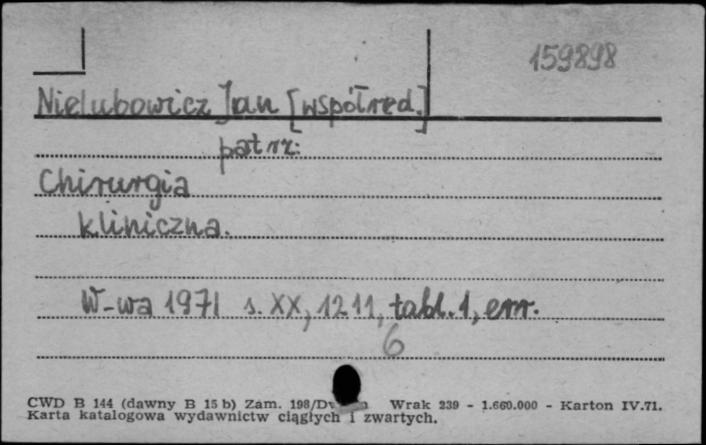 159898
Nielubowicz Jan [współred.]
patrz:
Chirurgia
kliniczna.
W-wa 1971 s. XX, 1211, tabl. 1, err.
6
CWD B 144 (dawny B 15 b) Zam. 198/ Wrak 239 - 1.660.000 - Karton IV.71.
Karta katalogowa wydawnictw ciągłych i zwartych.